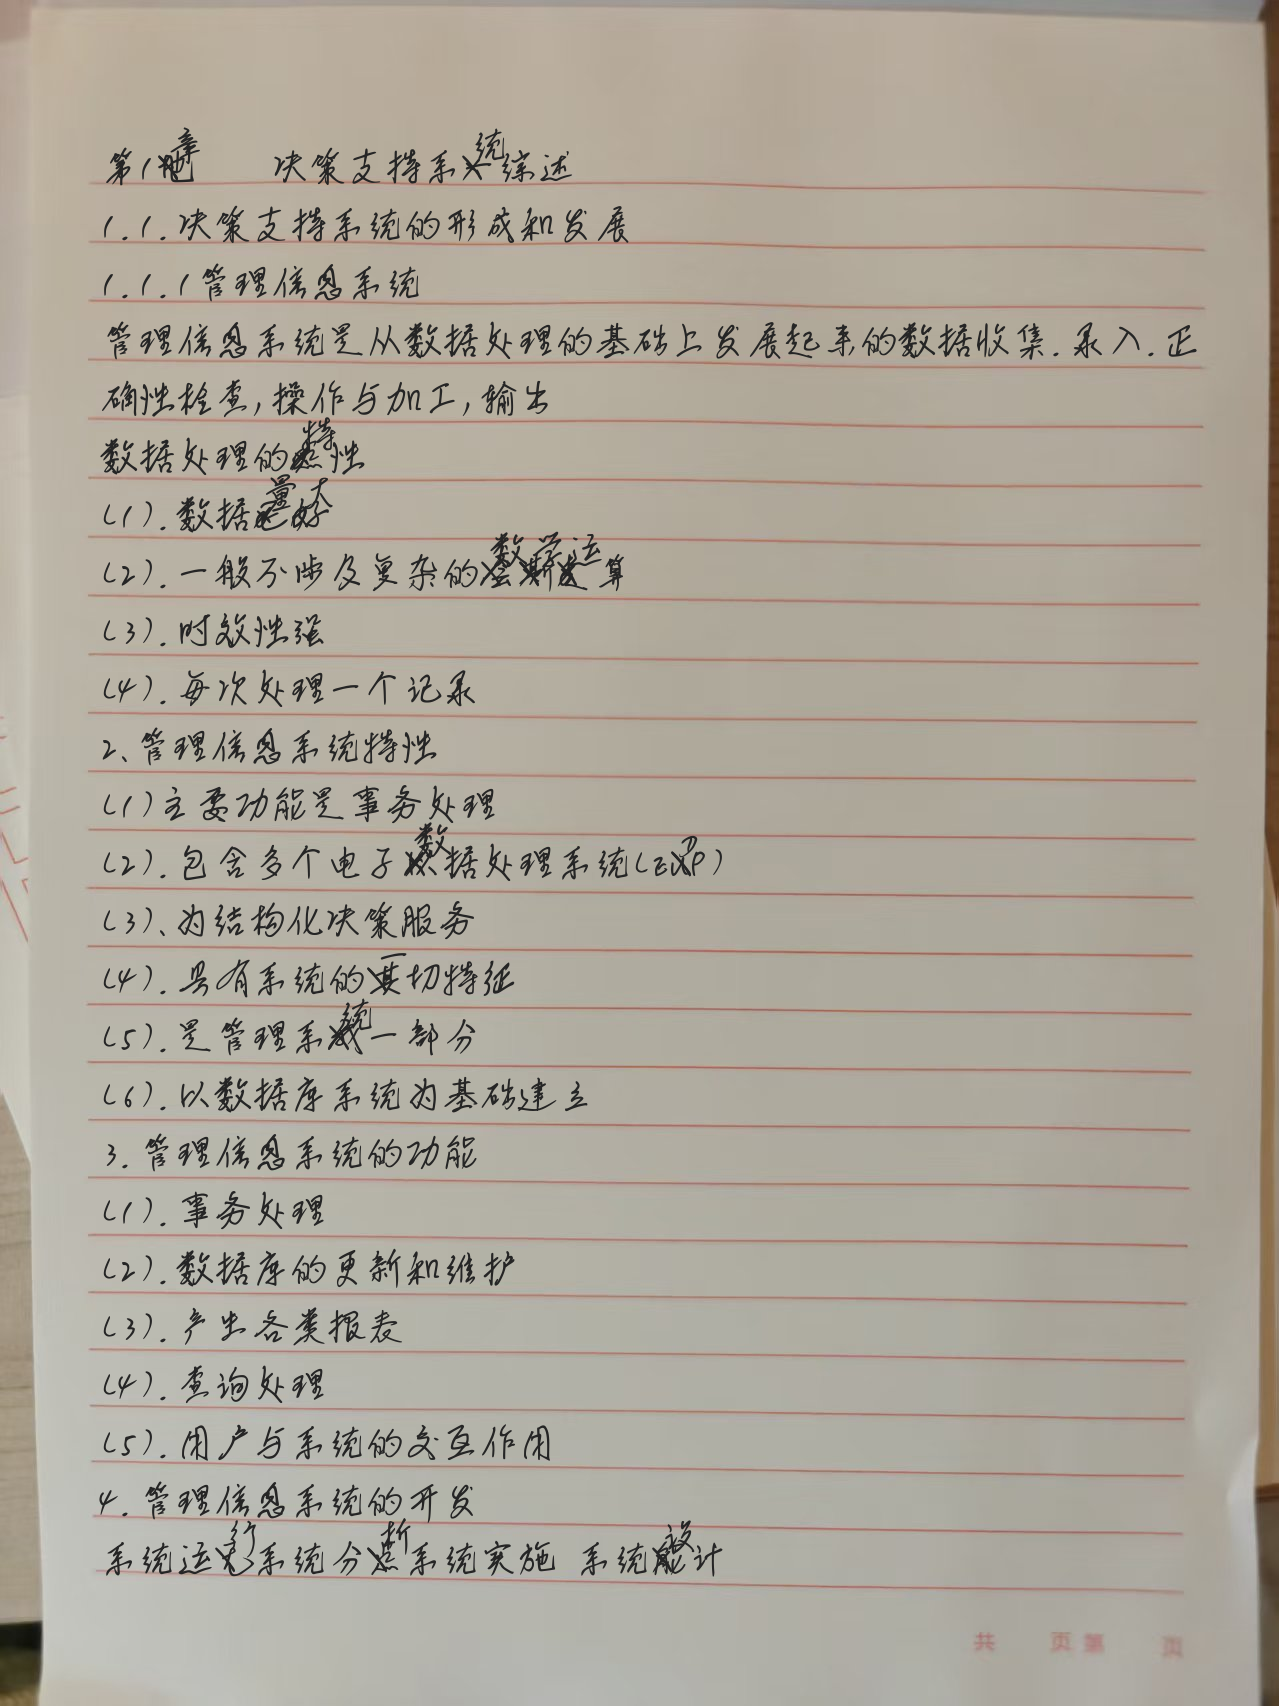 第1章 决策支持系统综述
1.1.决策支持系统的形成和发展
1.1.1管理信息系统
管理信息系统是从数据处理的基础上发展起来的数据收集.录入.正
确性检查,操作与加工,输出
数据处理的特性
(1).数据量大
(2).一般不涉及复杂的数学运算
(3).时效性强
(4).每次处理一个记录
2、管理信息系统特性
(1)主要功能是事务处理
(2).包含多个电子数据处理系统(EDP)
(3)、为结构化决策服务
(4).具有系统的一切特征
(5).是管理系统一部分
(6).以数据库系统为基础建立
3.管理信息系统的功能
(1).事务处理
(2).数据库的更新和维护
(3).产生各类报表
(4).查询处理
(5).用户与系统的交互作用
4.管理信息系统的开发
系统运行系统分析系统实施 系统设计
共 页 第 页